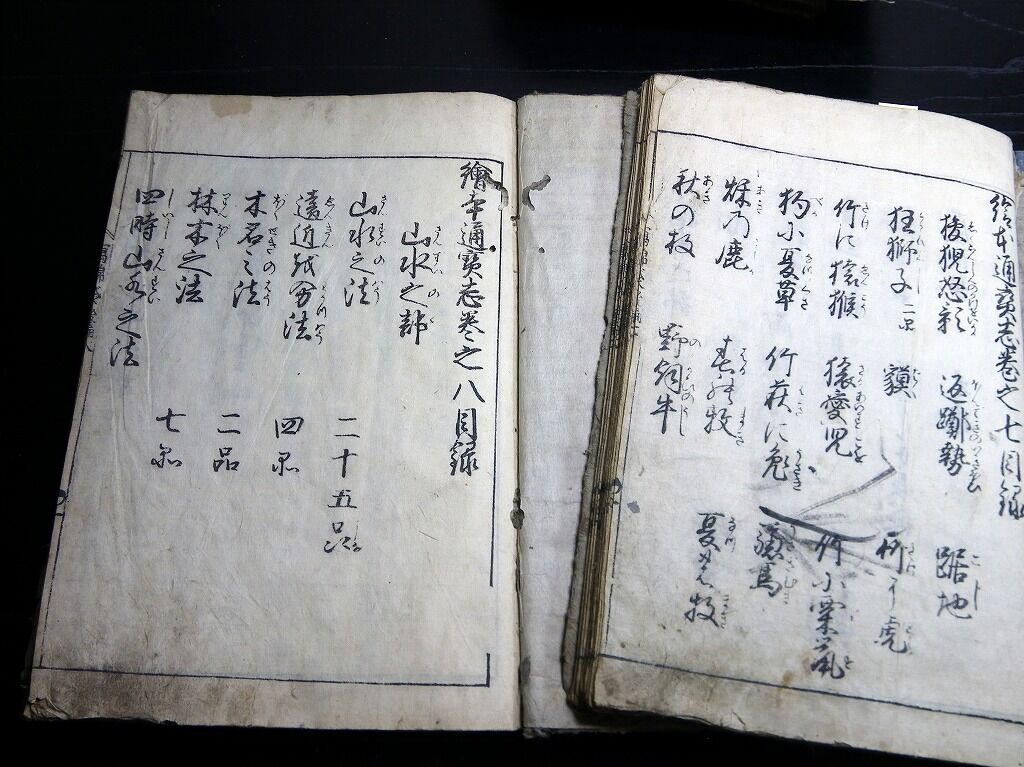 絵本通寳志巻之七目録
狻猊怒形 返躑勢 踞地
狂獅子 二品 貘 竹に虎
竹に猿猴 猿愛児 竹に栗鼠
狗に夏草 竹萩に兎 蟻馬
妺乃鹿 春の牧 夏の牧
秋の牧 野飼牛
繪本通寳志巻之八目録
山水之部
山水之法 二十五品
遠近の分法 四品
木石之法 二品
林木之法 七品
四時山水之法